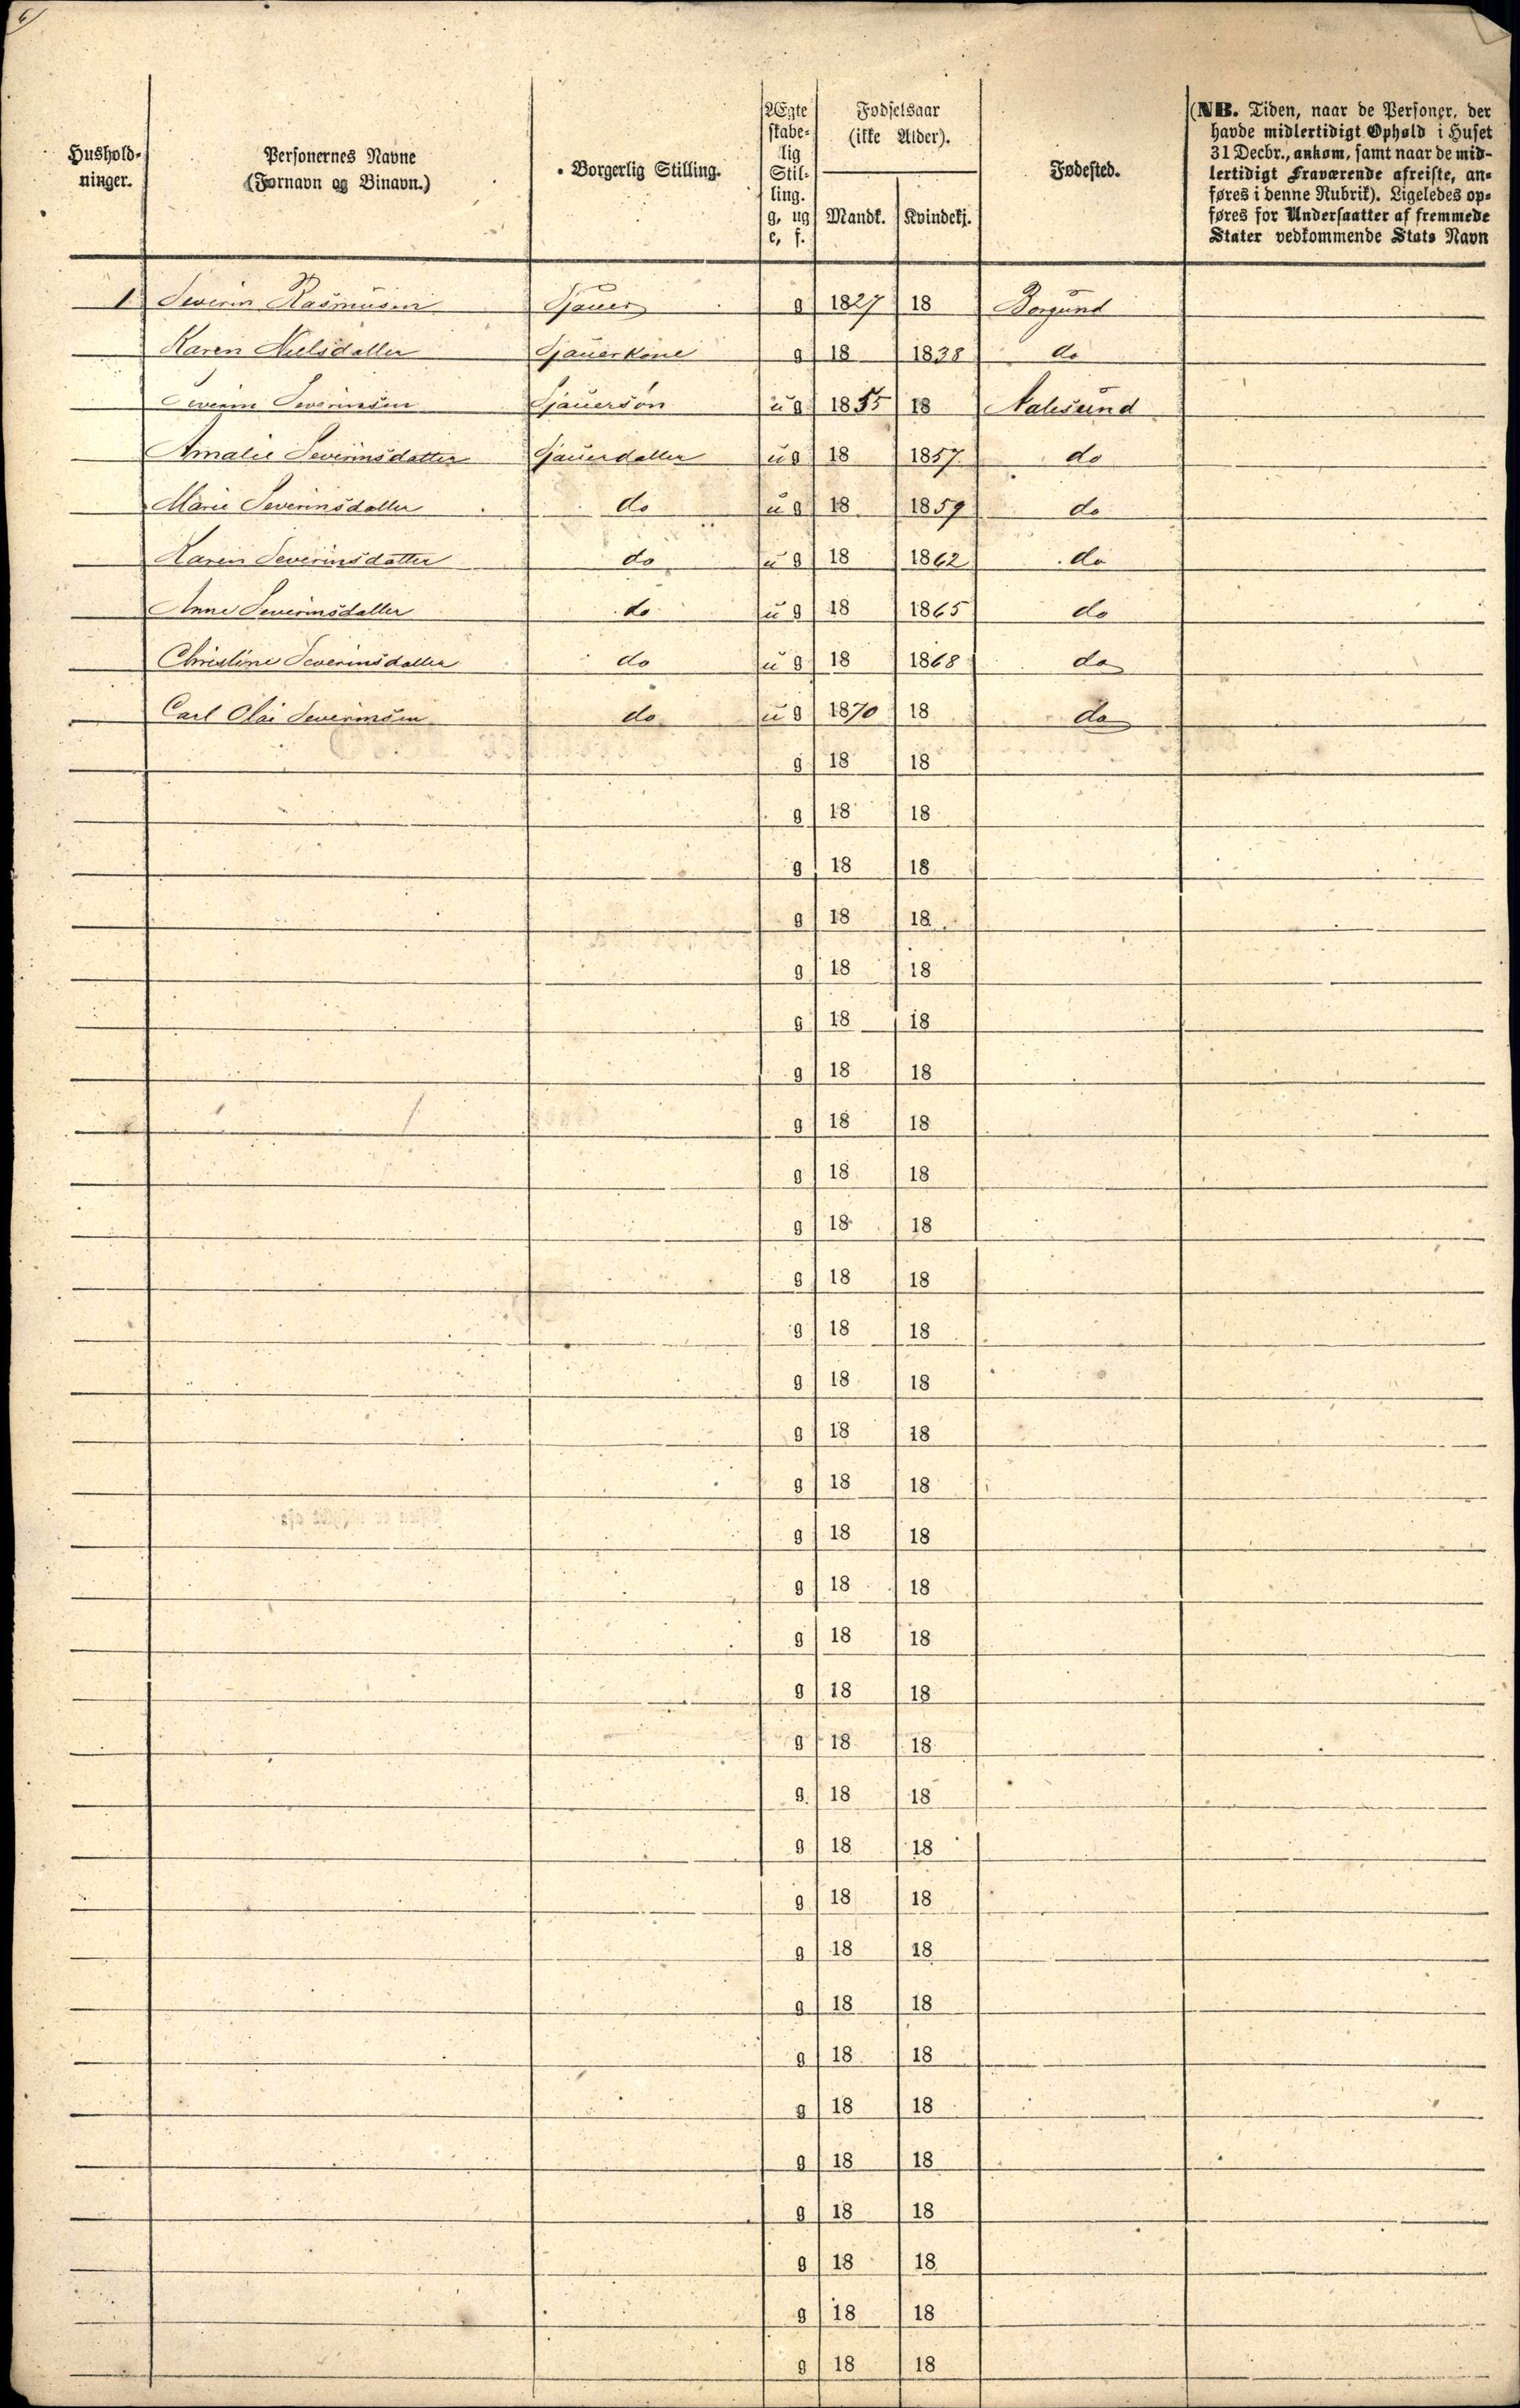 6/
Hushold-
ninger.
Personernes Navne
(Fornavn og Binavn.)
Borgerlig Stilling.
Ægte
skabe-
lig
Stil-
ling.
g, ug
e, f.
Fødselsaar
(ikke Alder).
Mandk. Kvindekj.
Fødested.
(NB. Tiden, naar de Personer, der
havde midlertidigt Ophold i Huset
31 Decbr., ankom, samt naar de mid-
lertidigt Fraværende afreiste, an-
føres i denne Rubrik). Ligeledes op-
føres for Undersaatter af fremmede
Stater vedkommende Stats Navn
1 Severin Rasmusen Sjauer g 1827 18 Borgund
Karen Nielsdatter Sjauerkone g 18 1838 do
Severin Severinsen Sjauersøn ug 1855 18 Aalesund
Amalie Severinsdatter Sjauerdatter ug 18 1857 do
Marie Severinsdatter do ug 18 1859 do
Karen Severinsdatter do ug 18 1862 do
Anne Severinsdatter do ug 18 1865 do
Christine Severinsdatter do ug 18 1868 do
Carl Olai Severinsen do ug 1870 18 do
g 18 18
g 18 18
g 18 18
g 18 18
g 18 18
g 18 18
g 18 18
g 18 18
g 18 18
g 18 18
g 18 18
g 18 18
g 18 18
g 18 18
g 18 18
g 18 18
g 18 18
g 18 18
g 18 18
g 18 18
g 18 18
g 18 18
g 18 18
g 18 18
g 18 18
g 18 18
g 18 18
g 18 18
g 18 18
g 18 18
g 18 18
g 18 18